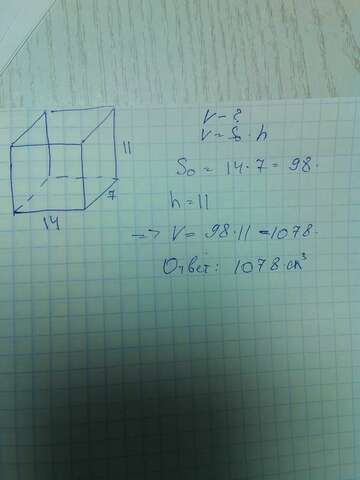 V - ?
V = S₀ · h
11
S₀ = 14 · 7 = 98.
7
h = 11
14
=> V = 98 · 11 = 1078.
Ответ: 1078 см³